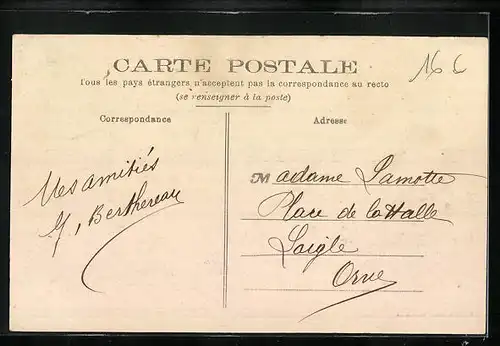 CARTE POSTALE
16 6
Tous les pays étrangers n'acceptent pas la correspondance au recto
(se renseigner à la poste)
Correspondance
Adresse
Mes amitiés
Berthereau
Madame Lamotte
Place de la Halle
Laigle
Orne